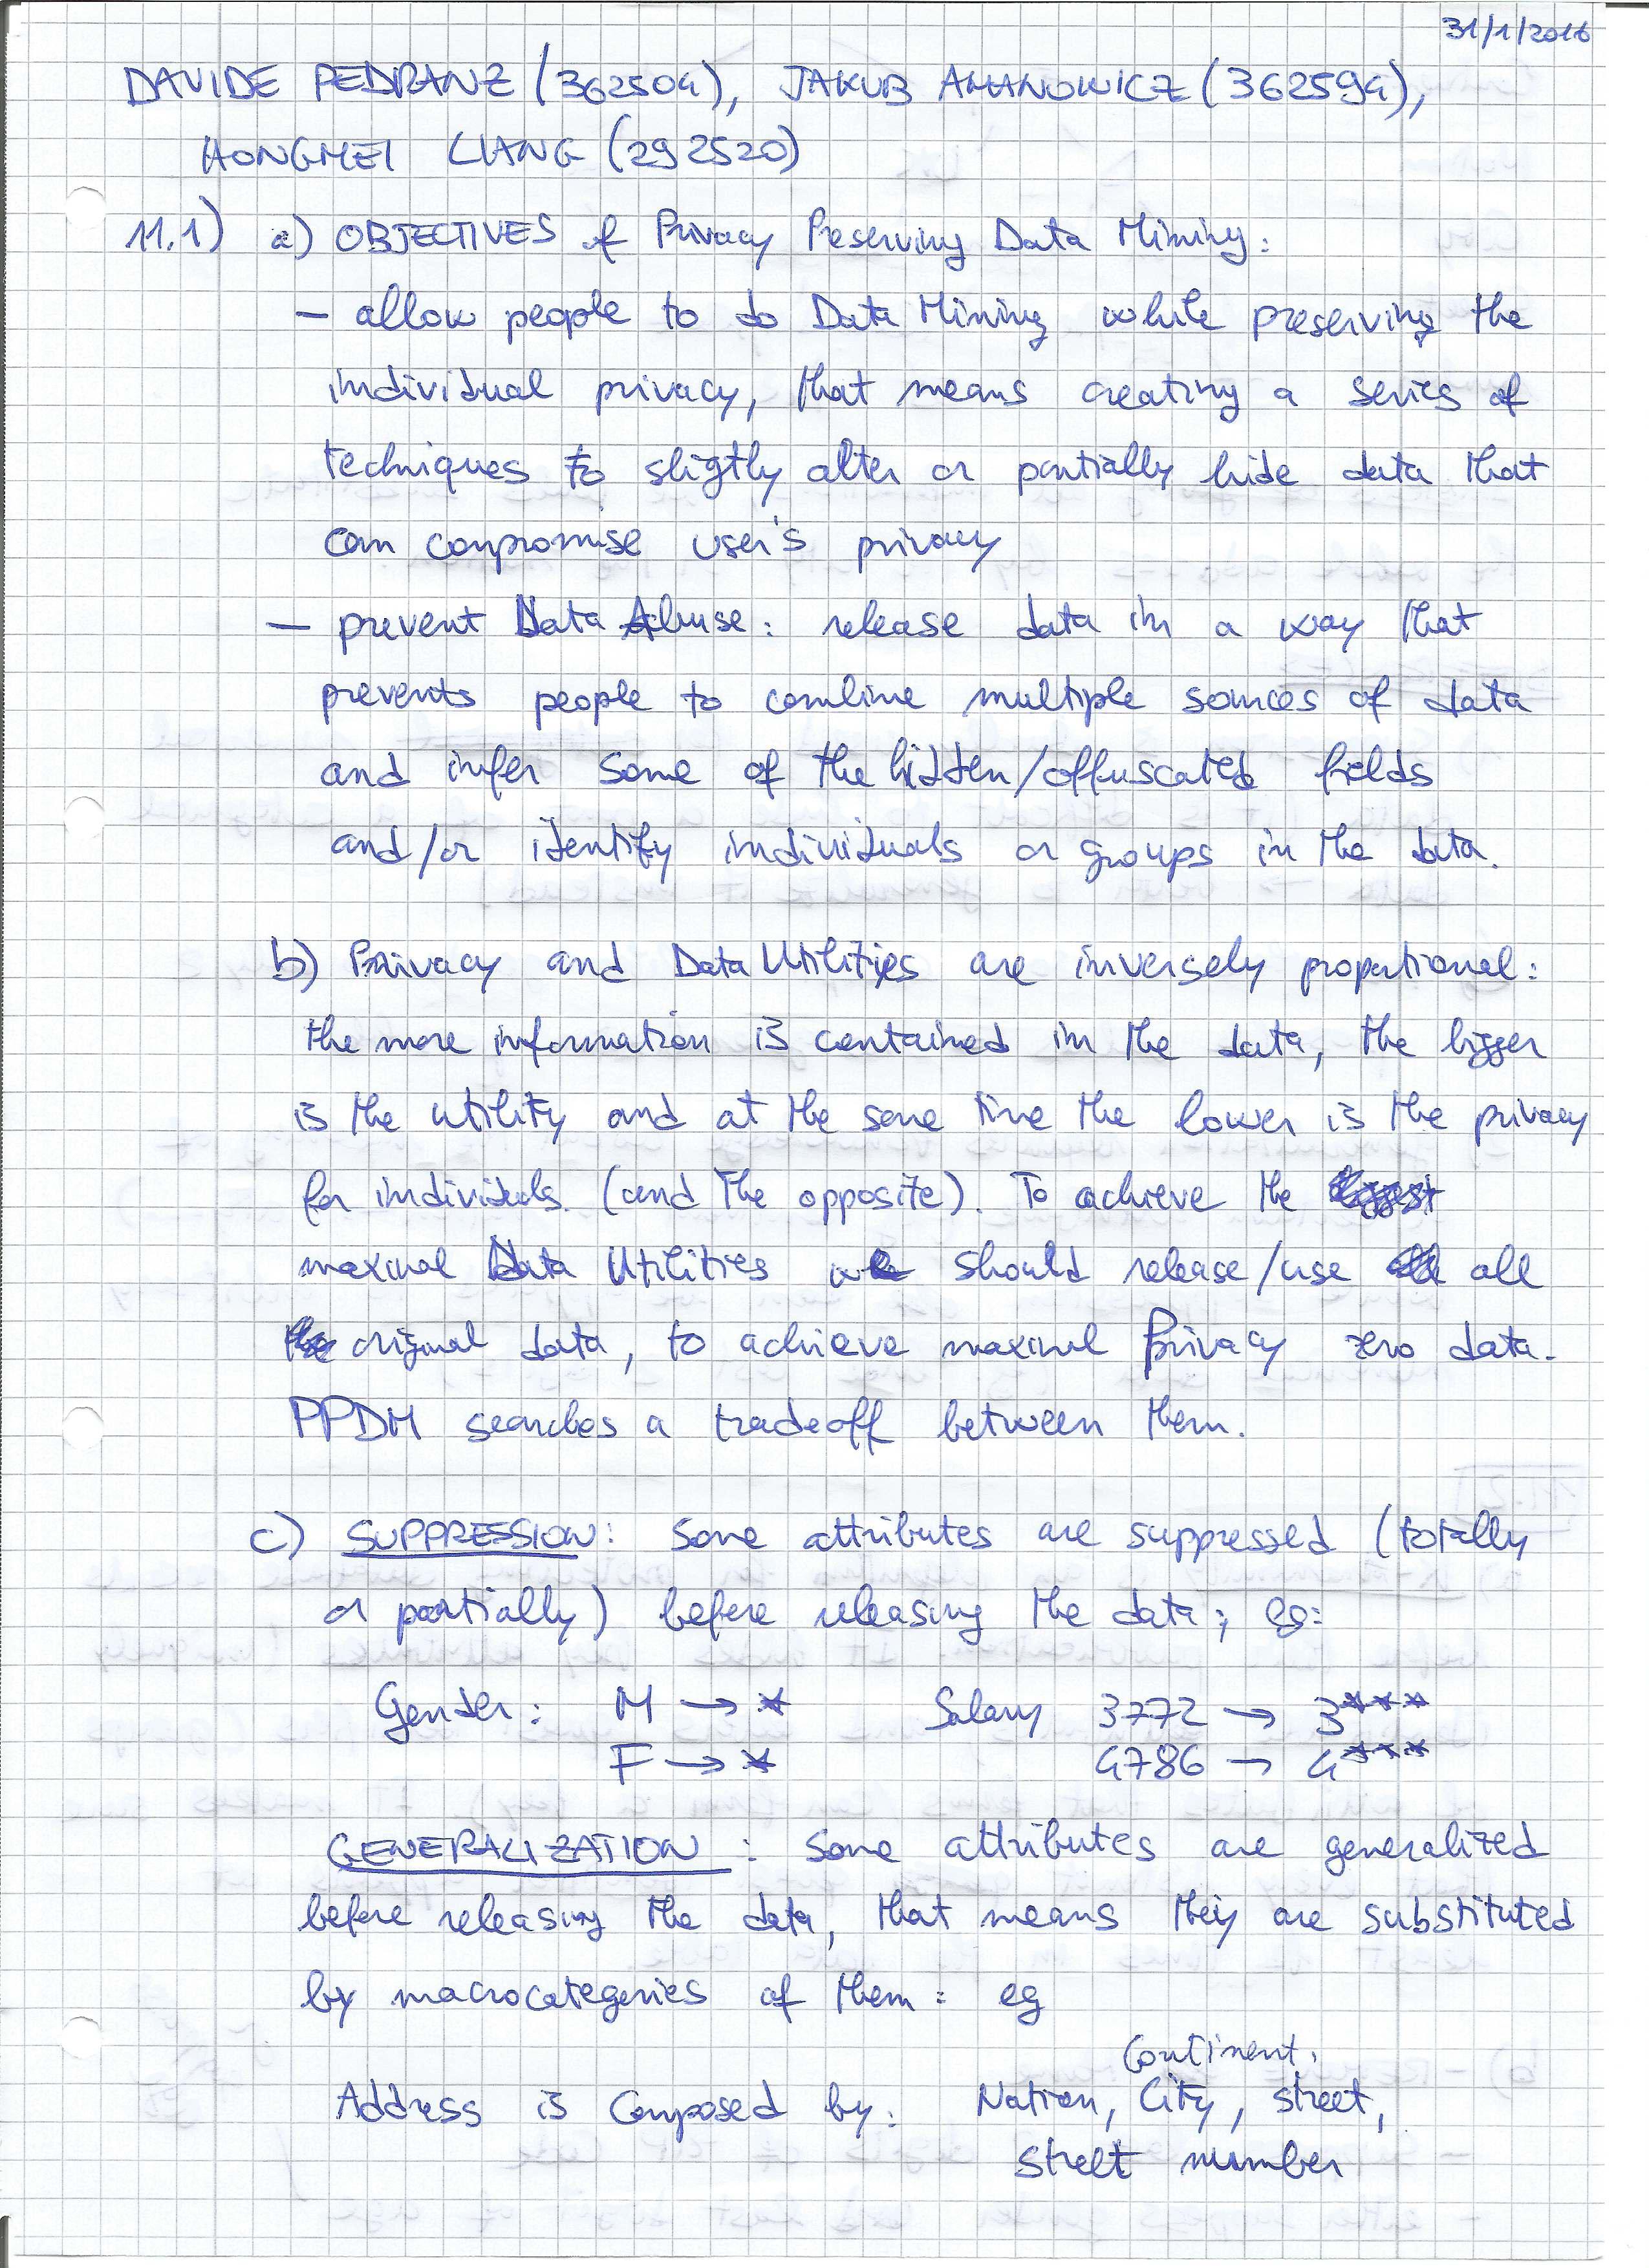 31/1/2016
DAVIDE PEDRANZ (362504), JAKUB AMANOWICZ (362594),
HONGMEI LIANG (292520)
11.1) a) OBJECTIVES of Privacy Preserving Data Mining:
– allow people to do Data Mining while preserving the
individual privacy, that means creating a series of
techniques to sligtly alter or partially hide data that
can conpromise user's privacy
– prevent Data Abuse: release data in a way that
prevents people to combine multiple sources of data
and infer some of the hidden/offuscated fields
and/or identify individuals or groups in the data.
b) Privacy and Data Utilities are inversely proportional:
the more information is contained in the data, the bigger
is the utility and at the same time the lower is the privacy
for individuals. (and the opposite). To achieve the
maximal Data Utilities we should release/use all
original data, to achieve maximal Privacy zero data.
PPDM searches a tradeoff between them.
c) SUPPRESSION: Some attributes are suppressed (totally
or partially) before releasing the data; eg:
Gender: M → * Salary 3772 → 3***
F → * 4786 → 4***
GENERALIZATION: Some attributes are generalized
before releasing the data, that means they are substituted
by macrocategories of them: eg
Continent,
Address is Composed by: Nation, City, street,
street number